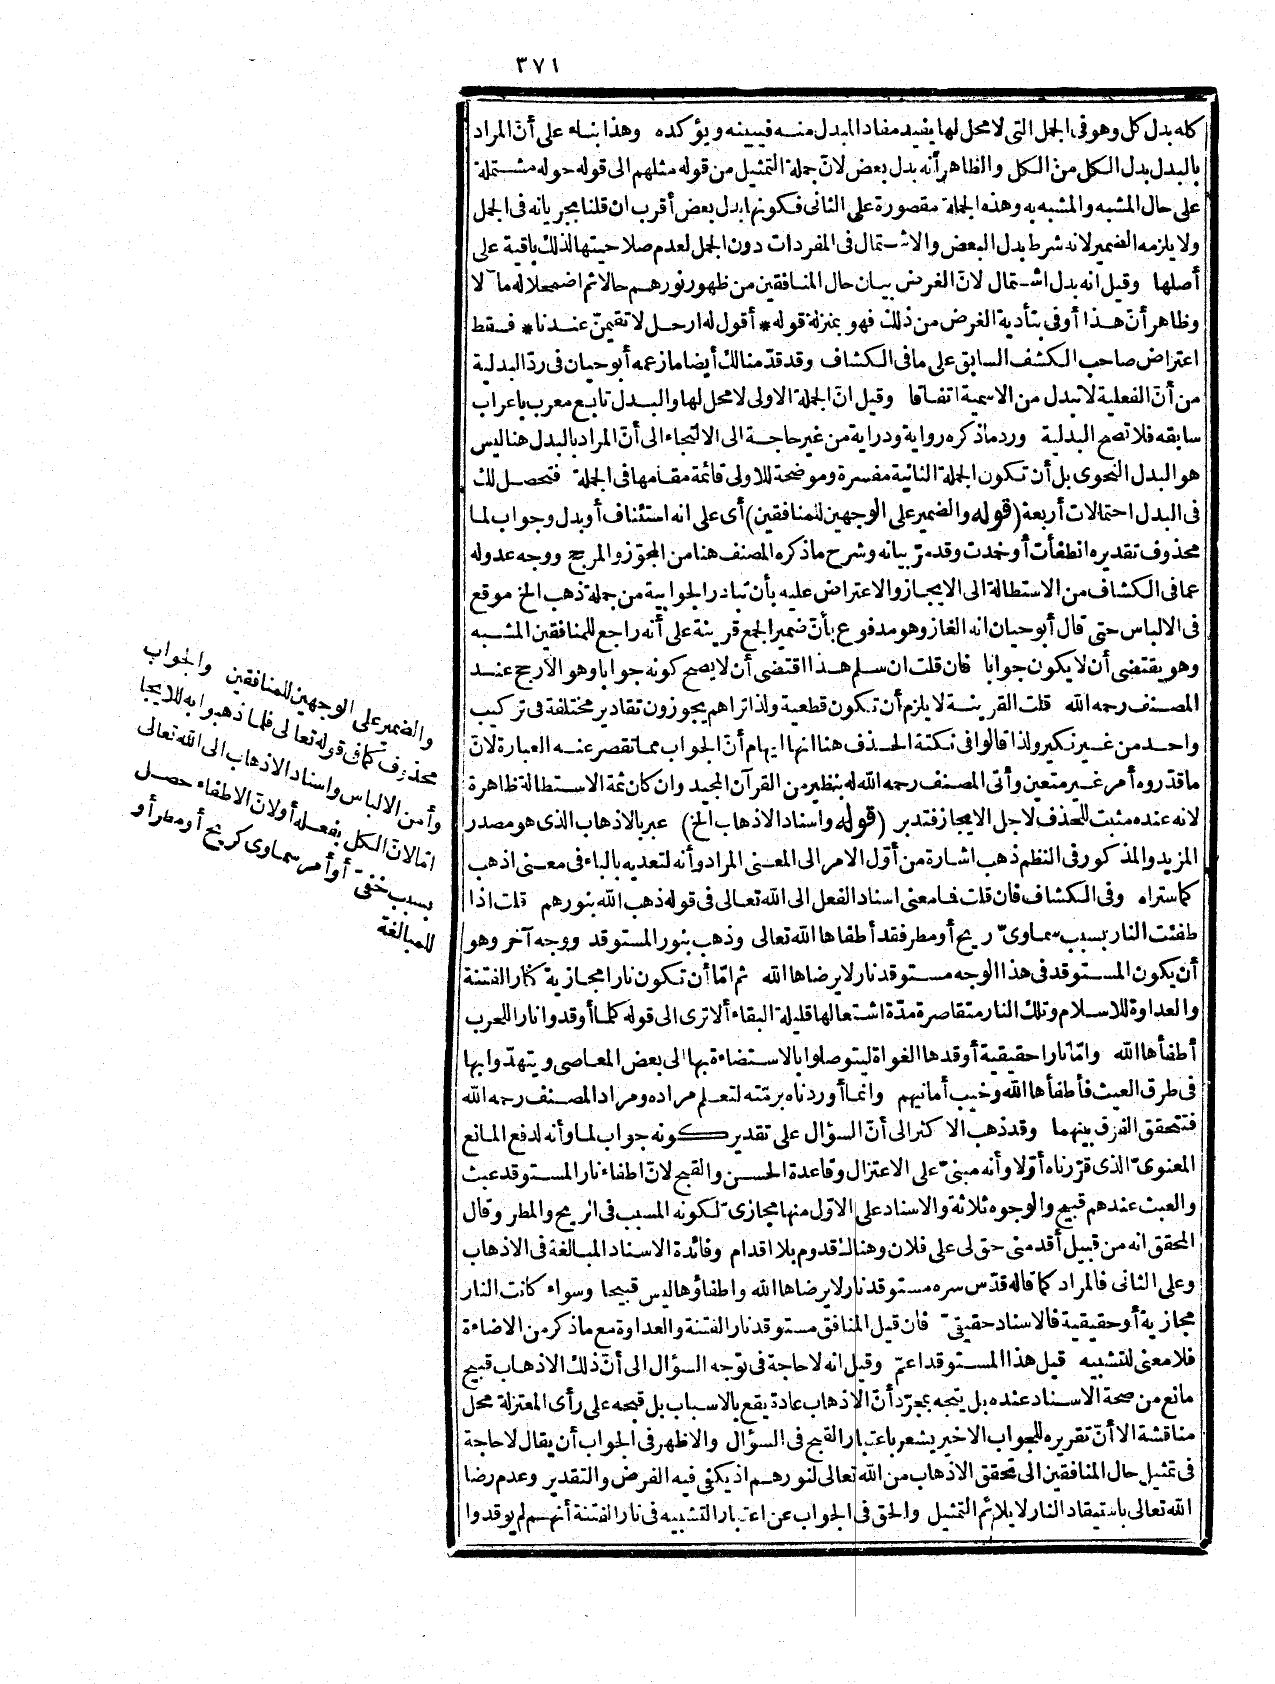 ٣٧١
كله بدل كل وهو فى الجمل التى لا محل لها يفيد مفاد المبدل منه فيبينه ويؤكده وهذا بناء على أنّ المراد
بالبدل بدل الكل من الكل والظاهر أنه بدل بعض لانّ جملة التمثيل من قوله مثلهم الى قوله حوله مشتملة
على حال المشبه والمشبه به وهذه الجملة مقصورة على الثانى فكونها بدل بعض أقرب ان قلنا بجريانه فى الجمل
ولا يلزمه الضمير لانه شرط بدل البعض والاشتمال فى المفردات دون الجمل لعدم صلاحيتها لذلك باقية على
أصلها وقيل انه بدل اشتمال لانّ الغرض بيان حال المنافقين من ظهور نورهم حالا ثم اضمحلاله مآلا
وظاهر أنّ هذا أوفى بتأدية الغرض من ذلك فهو بمنزلة قوله * أقول له ارحل لا تقيمنّ عندنا * فسقط
اعتراض صاحب الكشف السابق على ما فى الكشاف وقد قدّمنا لك أيضا ما زعمه أبو حيان فى ردّ البدلية
من أنّ الفعلية لا تبدل من الاسمية اتفاقا وقيل انّ الجملة الاولى لا محل لها والبدل تابع معرب باعراب
سابقه فلا تصح البدلية ورد ما ذكره رواية ودراية من غير حاجة الى الالتجاء الى أنّ المراد بالبدل هنا ليس
هو البدل النحوى بل أن تكون الجملة الثانية مفسرة وموضحة للاولى قائمة مقامها فى الجملة فتحصل لك
فى البدل احتمالات أربعة (قوله والضمير على الوجهين للمنافقين) أى على انه استئناف أو بدل وجواب لما
محذوف تقديره انطفأت أو خمدت وقد مرّ بيانه وشرح ما ذكره المصنف هنا من المجوّز والمرجح ووجه عدوله
عما فى الكشاف من الاستطالة الى الايجاز والاعتراض عليه بأن تبادر الجوابية من جملة ذهب الخ موقع
فى الالباس حتى قال أبو حيان انه الغاز وهو مدفوع بأنّ ضمير الجمع قرينة على أنه راجع للمنافقين المشبه
وهو يقتضى أن لا يكون جوابا فان قلت ان سلم هذا اقتضى أن لا يصح كونه جوابا وهو الارجح عند
المصنف رحمه الله قلت القرينة لا يلزم أن تكون قطعية ولذا تراهم يجوزون تقادير مختلفة فى تركيب
واحد من غير نكير ولذا قالوا فى نكتة الحذف هنا انها ايهام أنّ الجواب مما تقصر عنه العبارة لانّ
ما قدّروه أمر غير متعين وأتى المصنف رحمه الله له بنظير من القرآن المجيد وان كان ثمة الاستطالة ظاهرة
لانه عنده مثبت للحذف لاجل الايجاز فتدبر (قوله واسناد الاذهاب الخ) عبر بالاذهاب الذى هو مصدر
المزيد والمذكور فى النظم ذهب اشارة من أوّل الامر الى المعنى المراد وأنه لتعديه بالباء فى معنى اذهب
كما ستراه وفى الكشاف فان قلت فما معنى اسناد الفعل الى الله تعالى فى قوله ذهب الله بنورهم قلت اذا
طفئت النار بسبب سماوىّ ريح أو مطر فقد أطفاها الله تعالى وذهب بنور المستوقد ووجه آخر وهو
أن يكون المستوقد فى هذا الوجه مستوقد نار لا يرضاها الله ثم امّا أن تكون نارا مجازية كنار الفتنة
والعداوة للاسلام وتلك النار متقاصرة مدّة اشتعالها قليلة البقاء ألا ترى الى قوله كلما أوقدوا نارا للحرب
أطفأها الله وامّا نارا حقيقية أوقدها الغواة ليتوصلوا بالاستضاءة بها الى بعض المعاصى ويتهدّوا بها
فى طرق العيث فأطفأها الله وخيب أمانيهم وانما أوردناه برمّته لتعلم مراده ومراد المصنف رحمه الله
فتتحقق الفرق بينهما وقد ذهب الاكثر الى أنّ السؤال على تقدير كونه جواب لما وأنه لدفع المانع
المعنوىّ الذى قرّرناه أوّلا وأنه مبنىّ على الاعتزال وقاعدة الحسن والقبح لانّ اطفاء نار المستوقد عبث
والعبث عندهم قبيح والوجوه ثلاثة والاسناد على الاوّل منها مجازىّ لكونه المسبب فى الريح والمطر وقال
المحقق انه من قبيل أقدمنى حق لى على فلان وهناك قدوم بلا اقدام وفائدة الاسناد المبالغة فى الاذهاب
وعلى الثانى فالمراد كما قاله قدّس سره مستوقد نار لا يرضاها الله واطفاؤها ليس قبيحا وسواء كانت النار
مجازية أو حقيقية فالاسناد حقيقىّ فان قيل المنافق مستوقد نار الفتنة والعداوة مع ما ذكر من الاضاءة
فلا معنى للتشبيه قيل هذا المستوقد اعمّ وقيل انه لا حاجة فى توجه السؤال الى أنّ ذلك الاذهاب قبيح
مانع من صحة الاسناد عنده بل يتجه بمجرّد أنّ الاذهاب عادة يقع بالاسباب بل قبحه على رأى المعتزلة محل
مناقشة الا أنّ تقريره للجواب الاخير يشعر باعتبار القبح فى السؤال والاظهر فى الجواب أن يقال لا حاجة
فى تمثيل حال المنافقين الى تحقق الاذهاب من الله تعالى لنورهم اذ يكفى فيه الفرض والتقدير وعدم رضا
الله تعالى باستيقاد النار لا يلائم التمثيل والحق فى الجواب عن اعتبار التشبيه فى نار الفتنة أنهم لم يوقدوا
والضمير على الوجهين للمنافقين والجواب
محذوف كما فى قوله تعالى فلما ذهبوا به للايجا
وأمن الالباس واسناد الاذهاب الى الله تعالى
امّا لانّ الكل بفعله أو لانّ الاطفاء حصل
بسبب خفىّ أو أمر سماوى كريح أو مطر أو
للمبالغة